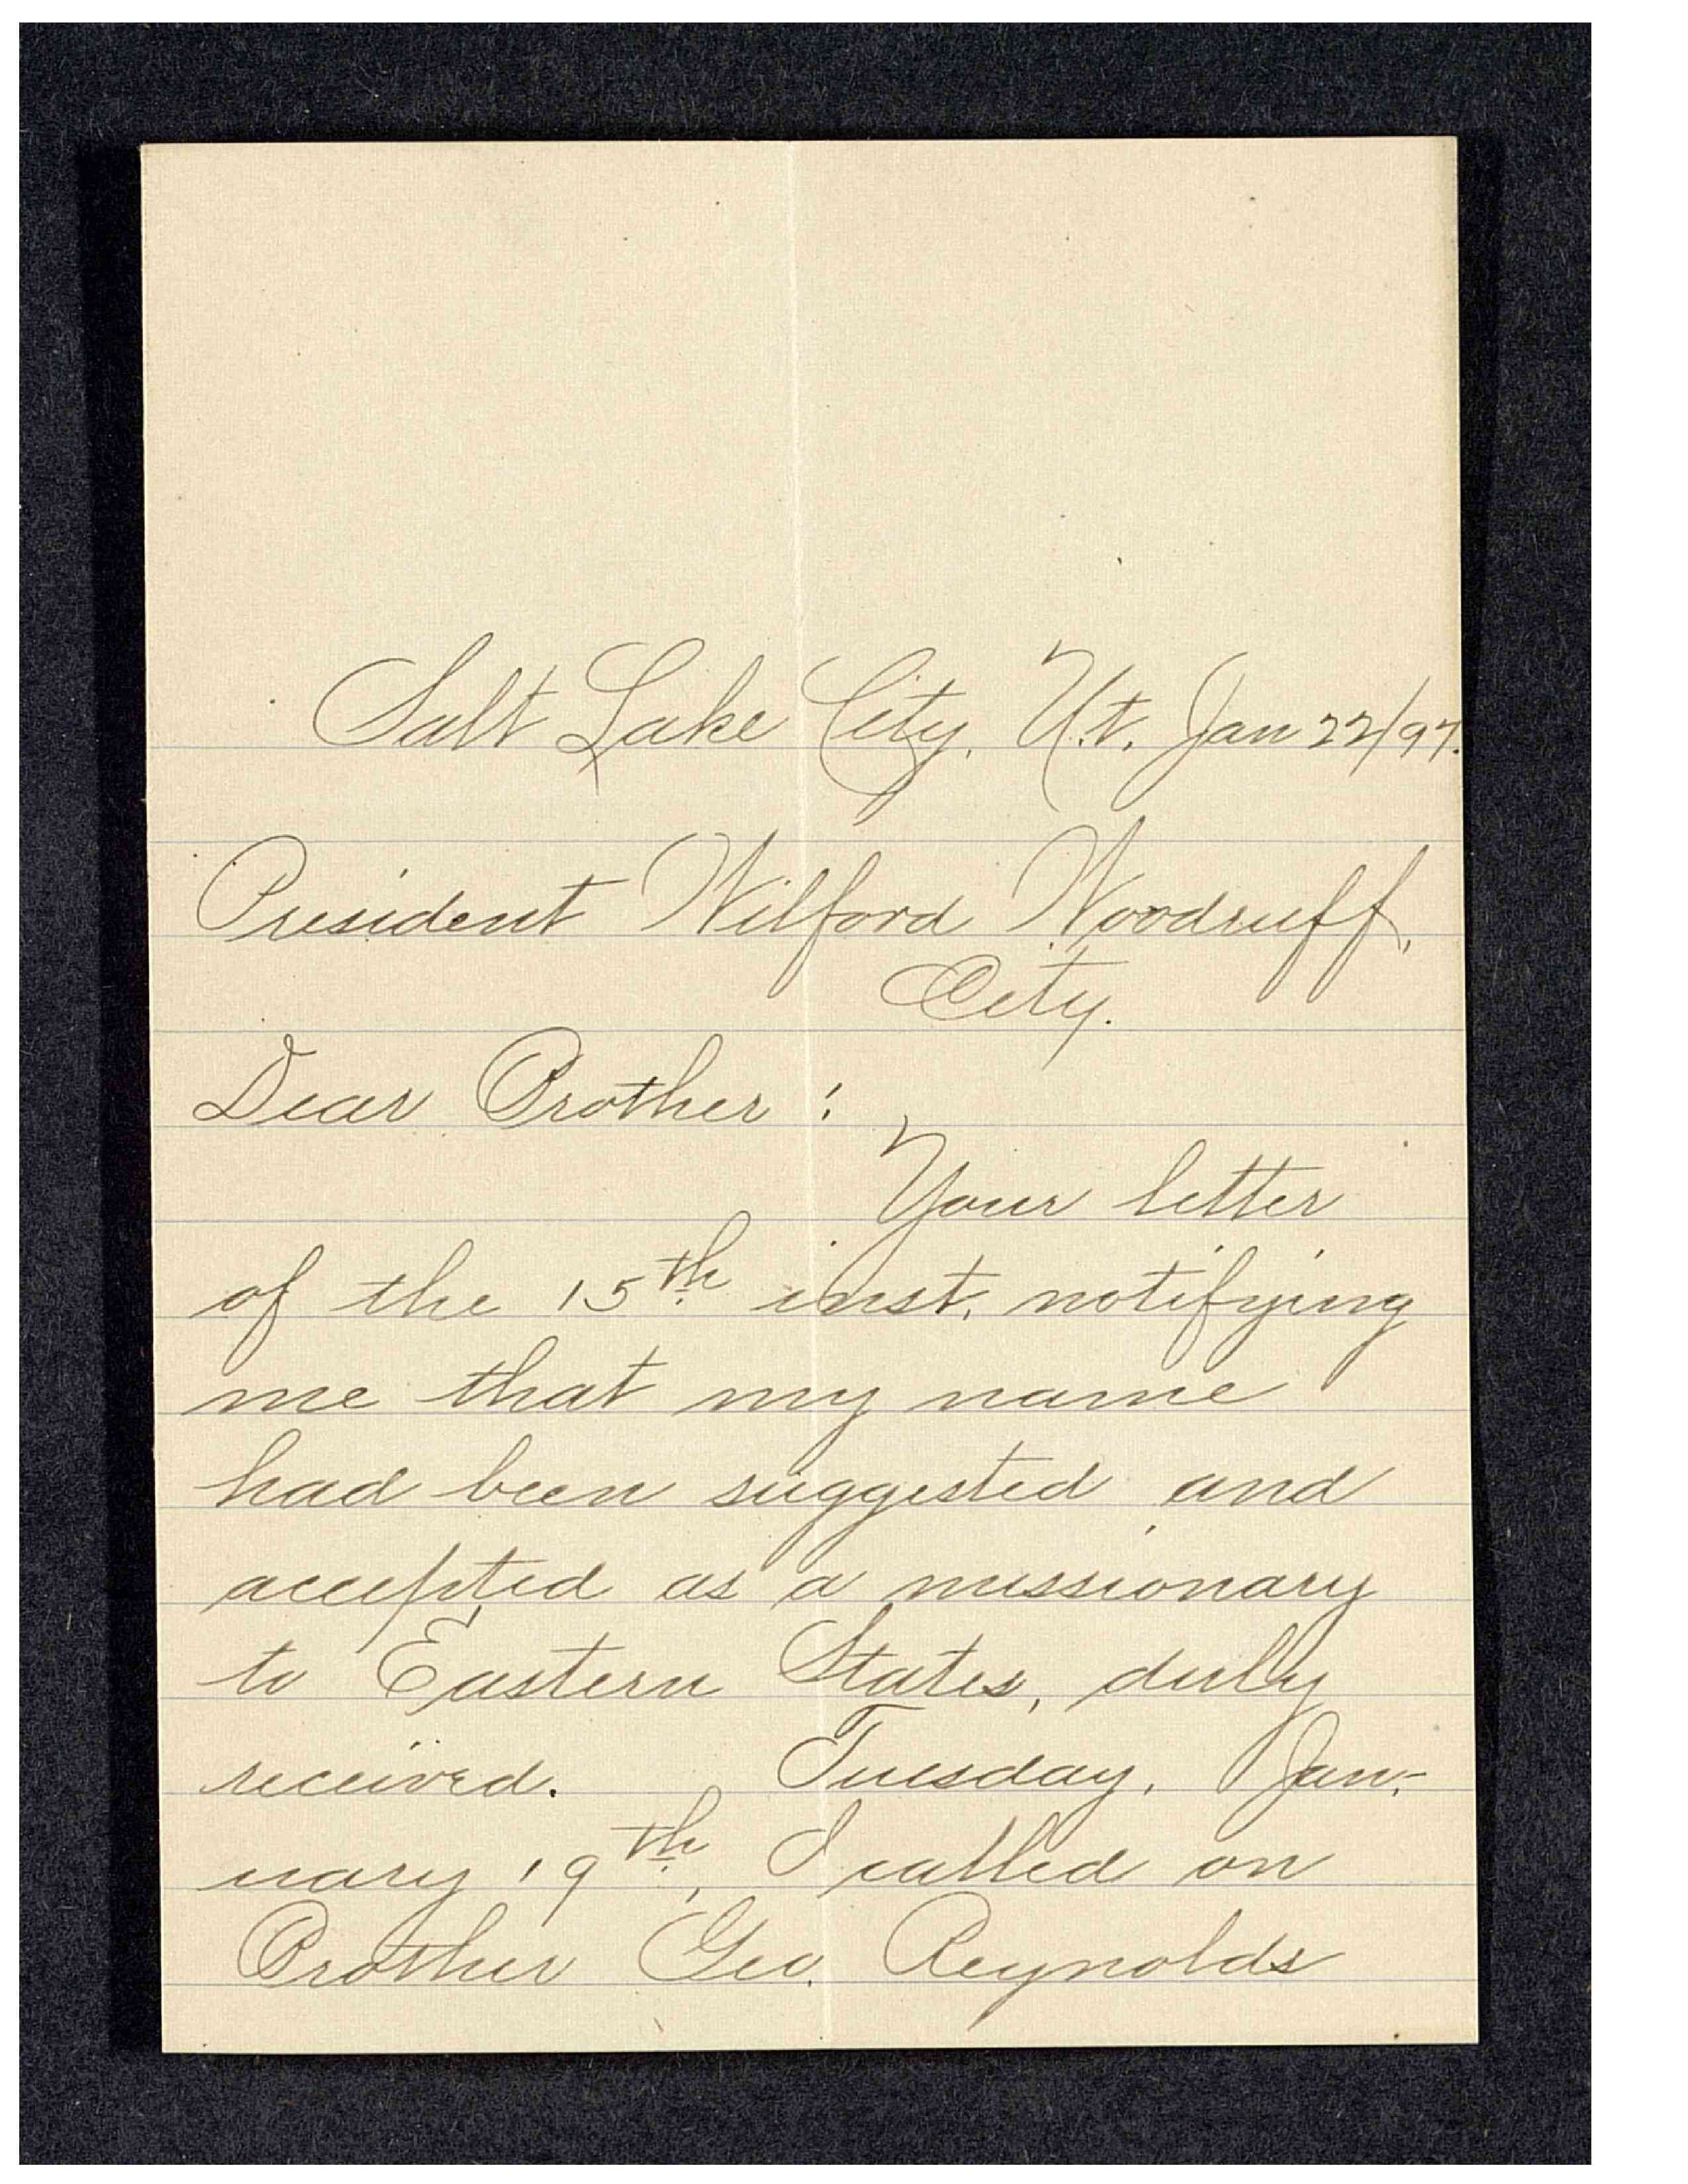 Salt Lake City, Ut. Jan 22/97.
President Wilford Woodruff,
City.
Dear Brother:
Your letter
of the 15th inst. notifying
me that my name
had been suggested and
accepted as a missionary
to Eastern States, duly
received. Tuesday, Jan-
uary 19th, I called on
Brother Geo. Reynolds